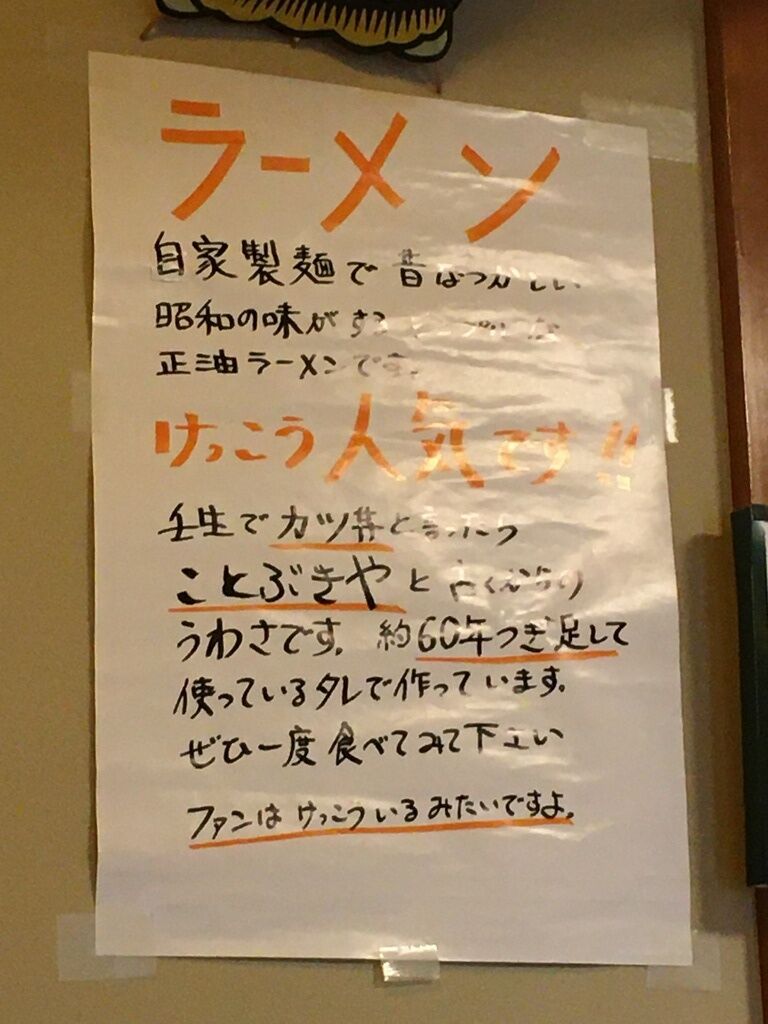 ラーメン
自家製麺で昔なつかしい
昭和の味がする シンプルな
正油ラーメンです。
けっこう人気です!!
壬生でカツ丼と言ったら
ことぶきやと古くからの
うわさです。約60年つぎ足して
使っているタレで作っています。
ぜひ一度食べてみて下さい
ファンはけっこういるみたいですよ。